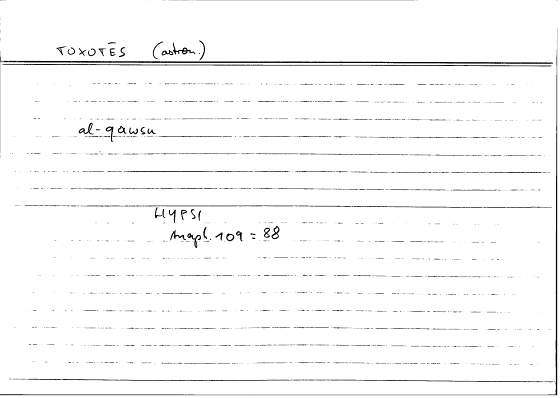 TOXOTĒS (astron.)
al-qawsu
HYPSI
Anaph. 109 = 88